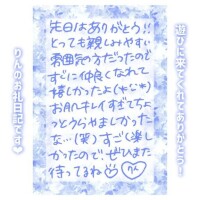 遊びに来てくれてありがとう!
先日はありがとう!!
とっても親しみやすい
雰囲気の方だったので
すぐに仲良くなれて
嬉しかったよ(*´ω`*)
お肌キレイすぎてちょ
っとうらやましかった
な…(笑)すごく楽し
かったのでぜひまた
待ってるね
りん
りんのお礼日記です♥